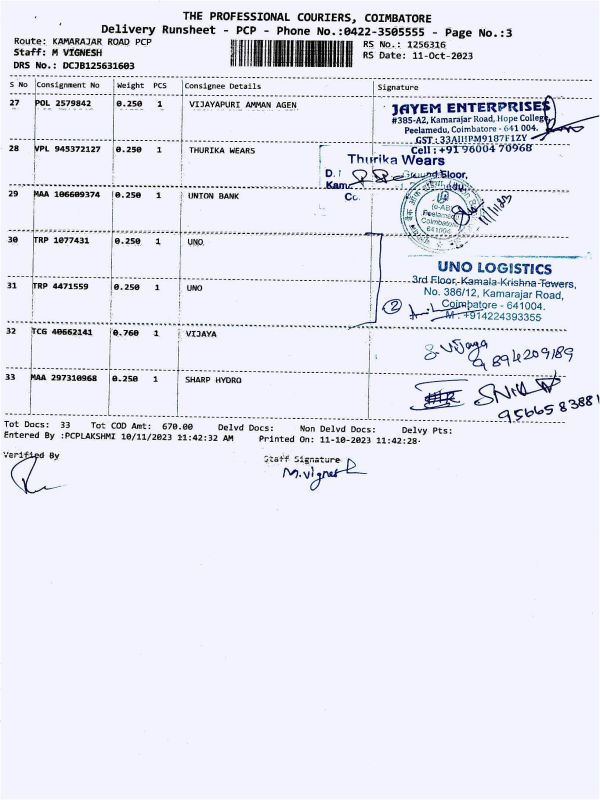 THE PROFESSIONAL COURIERS, COIMBATORE
Delivery Runsheet - PCP - Phone No.:0422-3505555 - Page No.:3
Route: KAMARAJAR ROAD PCP
RS No.: 1256316
Staff: M VIGNESH
RS Date: 11-Oct-2023
DRS No.: DCJB125631603
S No Consignment No Weight PCS Consignee Details Signature
27 POL 2579842 0.250 1 VIJAYAPURI AMMAN AGEN
JAYEM ENTERPRISES
#385-A2, Kamarajar Road, Hope College,
Peelamedu, Coimbatore - 641 004.
GST : 33AUIPM9187F1ZY
Cell : +91 96004 70968
28 VPL 945372127 0.250 1 THURIKA WEARS
Thurika Wears
29 MAA 106609374 0.250 1 UNION BANK
Peelamedu
Coimbatore
641004
30 TRP 1077431 0.250 1 UNO
31 TRP 4471559 0.250 1 UNO
UNO LOGISTICS
3rd Floor, Kamala Krishna Towers,
No. 386/12, Kamarajar Road,
Coimbatore - 641004.
M : +914224393355
2
32 TCG 40662141 0.760 1 VIJAYA
S. Vijaya
9894209189
33 MAA 297310968 0.250 1 SHARP HYDRO
9566583881
Tot Docs: 33 Tot COD Amt: 670.00 Delvd Docs: Non Delvd Docs: Delvy Pts:
Entered By :PCPLAKSHMI 10/11/2023 11:42:32 AM Printed On: 11-10-2023 11:42:28
Verified By
Staff Signature
M.Vignesh